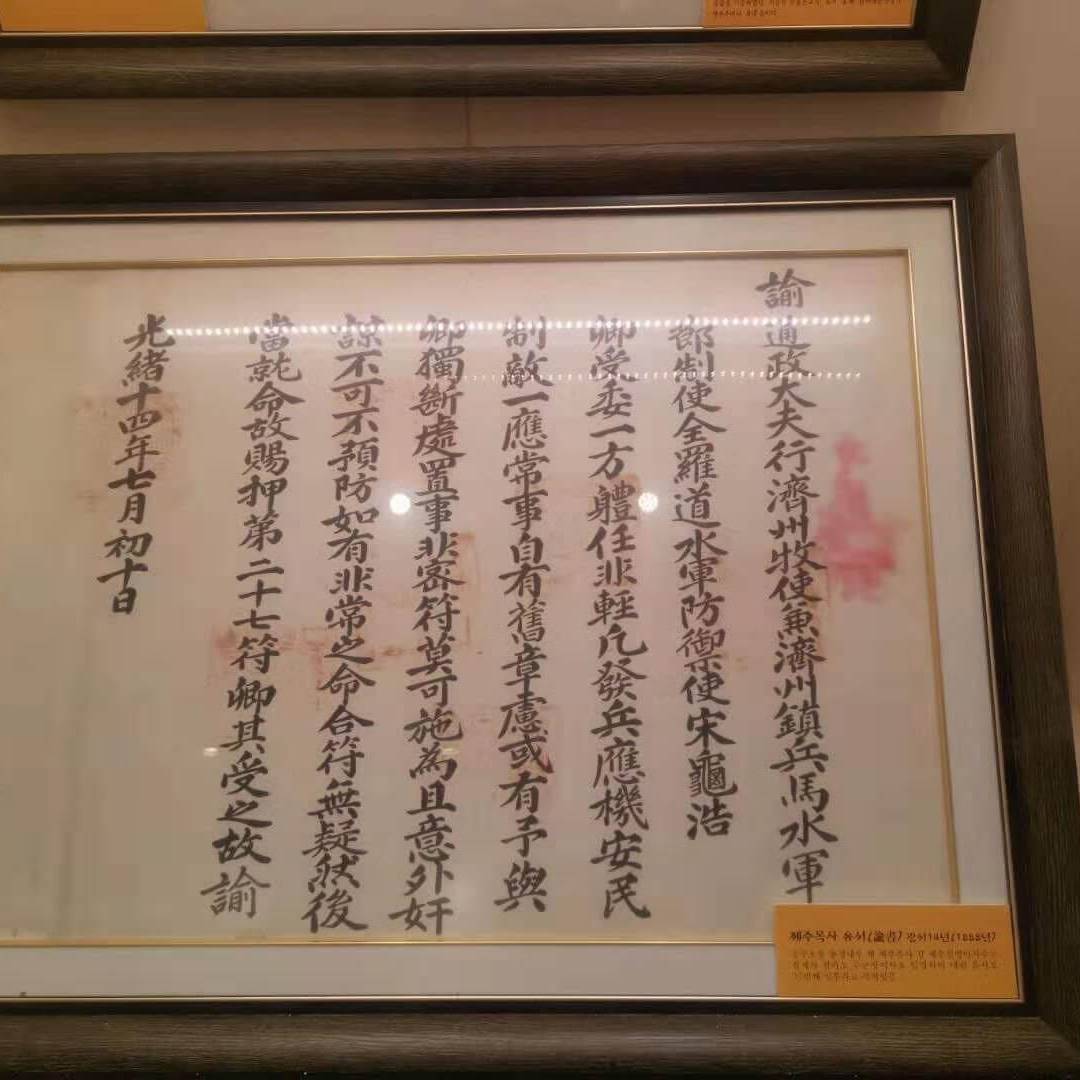 諭通政大夫行濟州牧使兼濟州鎮兵馬水軍
節制使全羅道水軍防禦使宋龜浩
卿受委一方軆任非輕凡發兵應機安民
制敵一應常事自有舊章慮或有予與
卿獨斷處置事非密符莫可施為且意外奸
謀不可不預防如有非常之命合符無疑然後
當就命故賜押第二十七符卿其受之故諭
光緒十四年七月初十日
제주목사 유서(諭書) 광서14년(1888년)